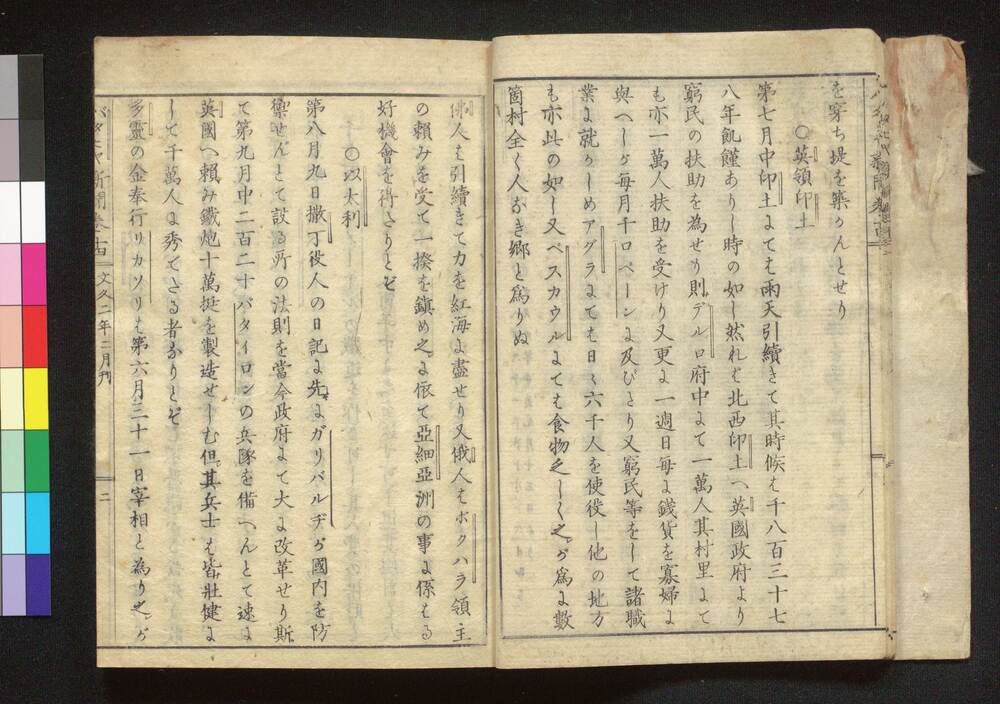 を穿ち堤を築かんとせり
○英領印土
第七月中印土にては雨天引續きて其時候は千八百三十七
八年飢饉ありし時の如し然れは北西印土へ英國政府より
窮民の扶助を為せり則デルロ府中にて一萬人其村里にて
も亦一萬人扶助を受けり又更に一週日毎に錢貨を寡婦に
與へしが每月千ロペーンに及びたり又窮民等をして諸職
業に就かしめアグラにては日々六千人を使役し他の地方
も亦此の如し又ベスカウルにては食物乏しく之が爲に數
箇村全く人なき郷と爲りぬ
佛人は引續きて力を紅海に盡せり又俄人はボクハラ領主
の賴みを受て一揆を鎭め之に依て亞細亞洲の事に係はる
好機會を得たりとぞ
○以太利
第八月九日撒丁役人の日記に先にガリバルヂが國内を防
禦せんとて設る所の法則を當今政府にて大に改革せり斯
て第九月中二百二十バタイロンの兵隊を備へんとて速に
英國へ賴み鐵炮十萬挺を製造せしむ但其兵士は皆壯健に
して千萬人に秀でたる者なりとぞ
多靈の金奉行リカソリは第六月三十一日宰相と為り之が
バタヒヤ新聞 卷十 文久二年二月刊 二